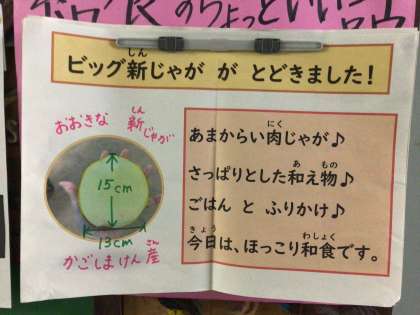 のちょっといい話
ビッグ新じゃが が とどきました!
おおきな 新じゃが
15cm
13cm
かごしまけん産
あまからい肉じゃが♪
さっぱりとした和え物♪
ごはん と ふりかけ♪
今日は、ほっこり和食です。